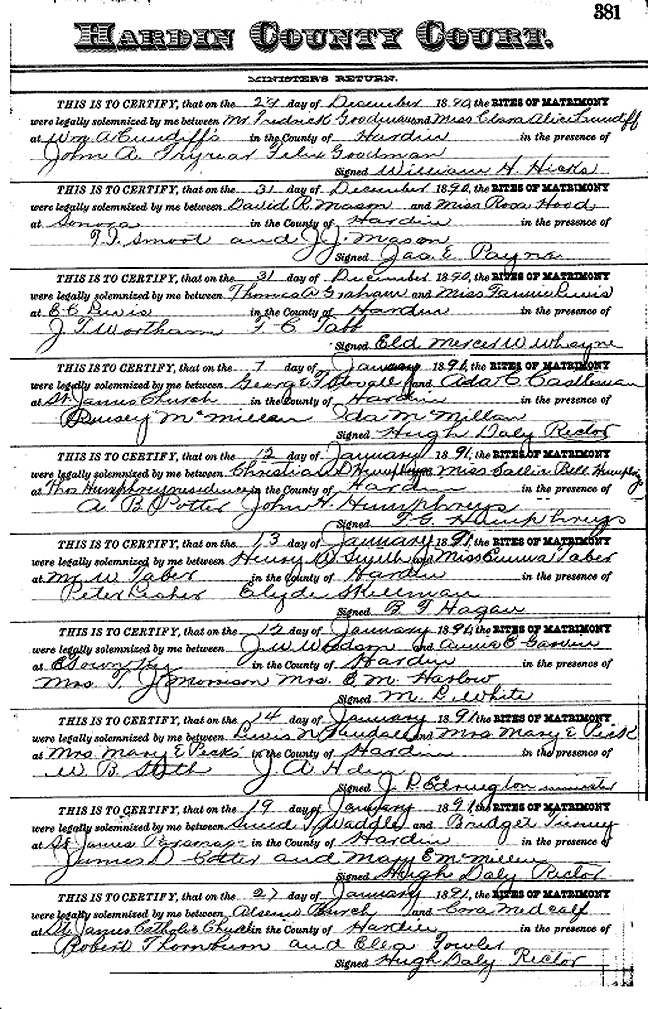 381
HARDIN COUNTY COURT.
MINISTER'S RETURN.
THIS IS TO CERTIFY, that on the 24 day of December 1890, the RITES OF MATRIMONY
were legally solemnized by me between Mr Fredrick Goodman and Miss Clara Alice Cundiff
at Wm A. Cundiff's in the County of Hardin in the presence of
John A. Felix Goodman
Signed William H. Hicks
THIS IS TO CERTIFY, that on the 31 day of December 1890, the RITES OF MATRIMONY
were legally solemnized by me between David R. Mason and Miss Rosa Hood
at Sonora in the County of Hardin in the presence of
Smoot and J. J. Mason
Signed Jas. E. Payne
THIS IS TO CERTIFY, that on the 31 day of December 1890, the RITES OF MATRIMONY
were legally solemnized by me between Thomas A Graham and Miss Fannie Lewis
at E C Lewis in the County of Hardin in the presence of
J T Wortham F C Tabb
Signed Eld Mercer W Whayne
THIS IS TO CERTIFY, that on the 7 day of January 1891, the RITES OF MATRIMONY
were legally solemnized by me between George T Stovall and Ada C Castleman
at St James Church in the County of Hardin in the presence of
McMillan Ida McMillan
Signed Hugh Daly Rector
THIS IS TO CERTIFY, that on the 12 day of January 1891, the RITES OF MATRIMONY
were legally solemnized by me between Christian D Humphreys Miss Sallie Bell
at Thos Humphreys residence in the County of Hardin in the presence of
A. B. Potter John H. Humphreys
Signed T. G. Humphreys
THIS IS TO CERTIFY, that on the 13 day of January 1891, the RITES OF MATRIMONY
were legally solemnized by me between Henry and Miss Emma Taber
at Mr W Taber in the County of Hardin in the presence of
Peter Clyde Skillman
Signed B. F. Hagan
THIS IS TO CERTIFY, that on the 12 day of January 1891, the RITES OF MATRIMONY
were legally solemnized by me between J. W. Woodson and Annie E
at in the County of Hardin in the presence of
Mrs. T. J. Morrison Mrs. E. M. Harlow
Signed M. L. White
THIS IS TO CERTIFY, that on the 14 day of January 1891, the RITES OF MATRIMONY
were legally solemnized by me between Lewis N Kendall and Mrs Mary E Peck
at Mrs Mary E Pecks in the County of Hardin in the presence of
W. B. Stith J A
Signed J. P. Edrington
THIS IS TO CERTIFY, that on the 19 day of January 1891, the RITES OF MATRIMONY
were legally solemnized by me between Waddle and Bridget
at St James Parsonage in the County of Hardin in the presence of
James D Cotter and Mary E McMillen
Signed Hugh Daly Rector
THIS IS TO CERTIFY, that on the 27 day of January 1891, the RITES OF MATRIMONY
were legally solemnized by me between Burch and Cora Medcalf
at St James Catholic Church in the County of Hardin in the presence of
Robert Thornburn and Ella Fowler
Signed Hugh Daly Rector